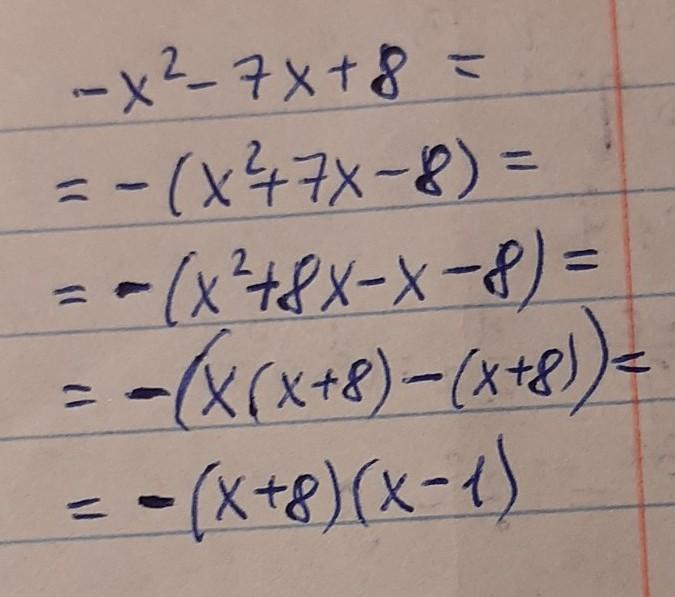 -x²-7x+8 =
= -(x²+7x-8) =
= -(x²+8x-x-8) =
= -(x(x+8)-(x+8)) =
= -(x+8)(x-1)